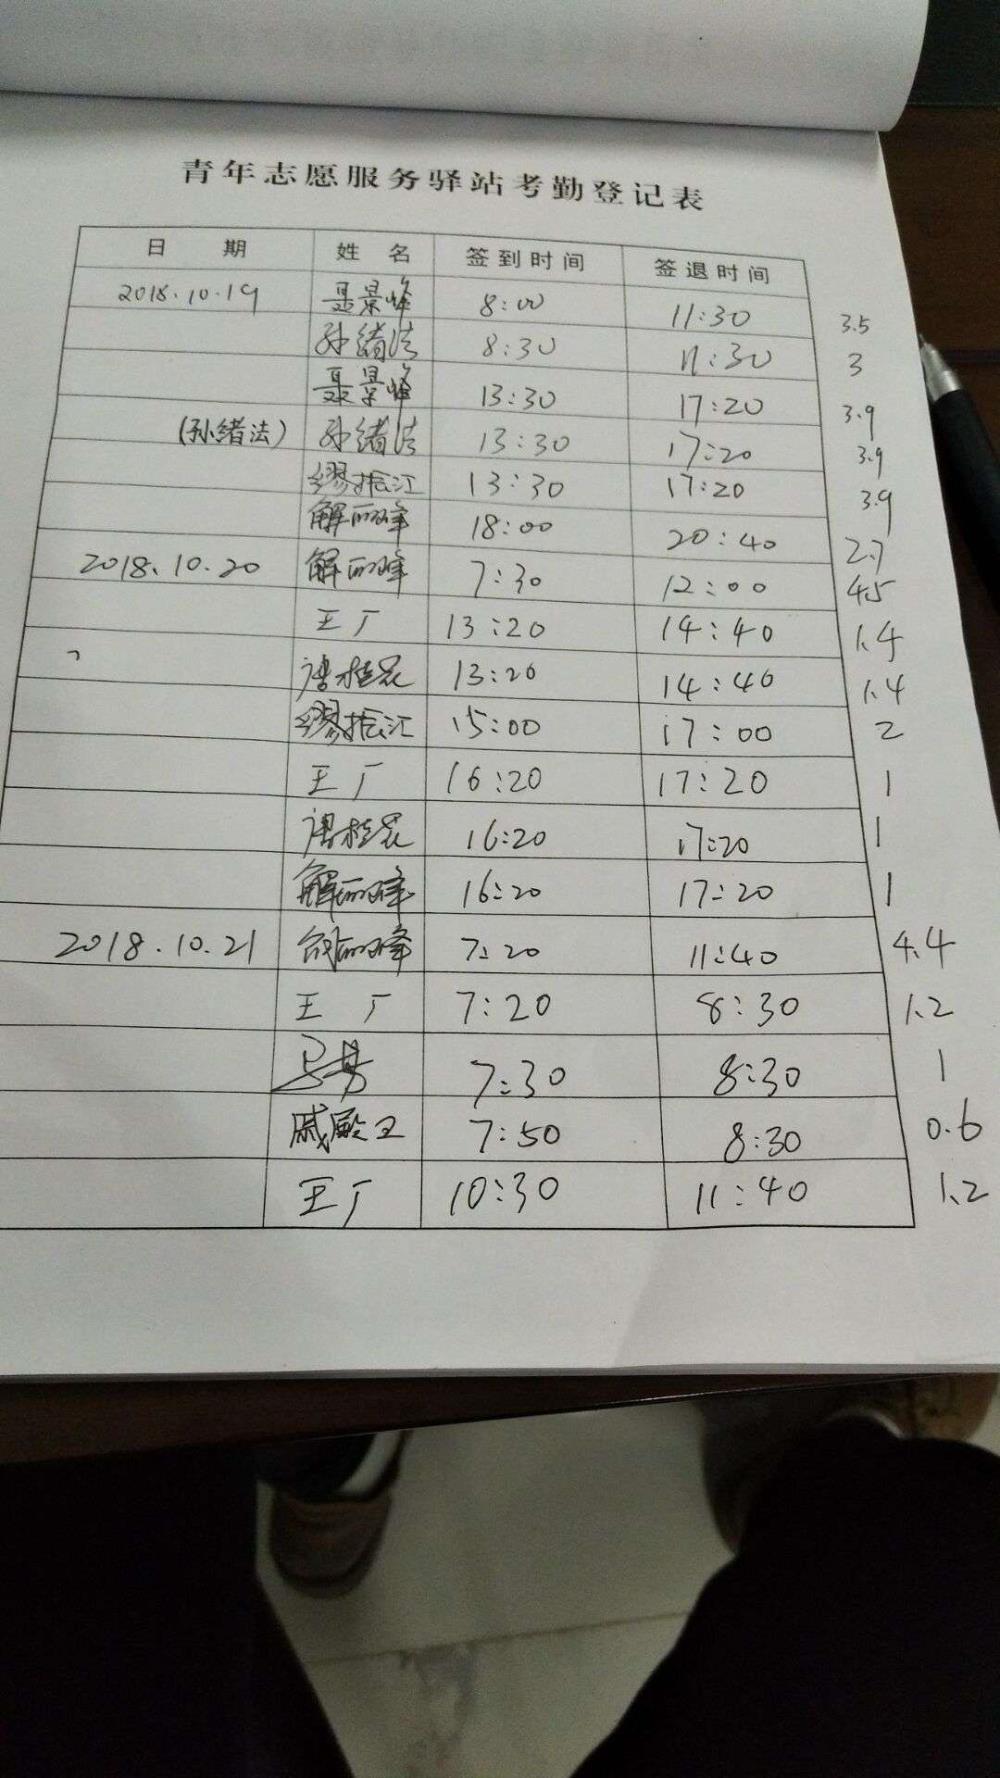 青年志愿服务驿站考勤登记表
日 期 姓 名 签到时间 签退时间
2018.10.19 聂景峰 8:00 11:30 3.5
孙绪法 8:30 11:30 3
聂景峰 13:30 17:20 3.9
(孙绪法) 孙绪法 13:30 17:20 3.9
缪振江 13:30 17:20 3.9
解丽峰 18:00 20:40 2.7
2018.10.20 解丽峰 7:30 12:00 4.5
王厂 13:20 14:40 1.4
13:20 14:40 1.4
缪振江 15:00 17:00 2
王厂 16:20 17:20 1
16:20 17:20 1
解丽峰 16:20 17:20 1
2018.10.21 7:20 11:40 4.4
王 厂 7:20 8:30 1.2
7:30 8:30 1
戚殿卫 7:50 8:30 0.6
王厂 10:30 11:40 1.2